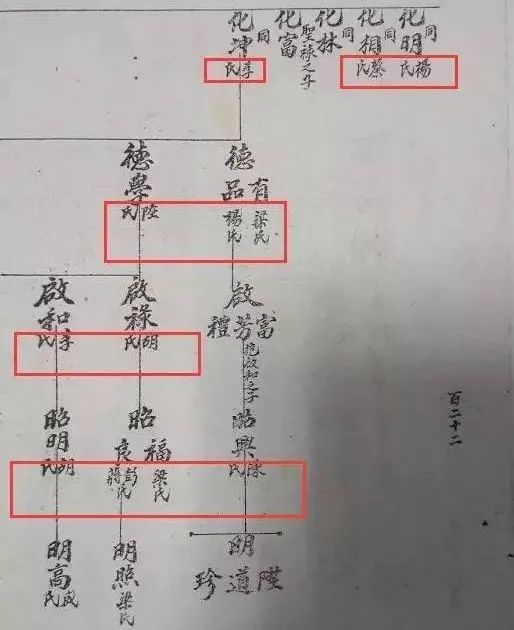 化明 同 楊氏
化相 同 蔡氏
化林 同
化富 聖祿之子
化坤 同 李氏
德
有 梁氏
品 楊氏
德學 陸氏
啟
富
芳
禮
抱啟和之子
啟祿 胡氏
啟和 李氏
昭興 陳氏
昭
福 梁氏
良 彭氏 蔣氏
昭明 胡氏
明
道
珍
明照 梁氏
明高 成氏
百二十二